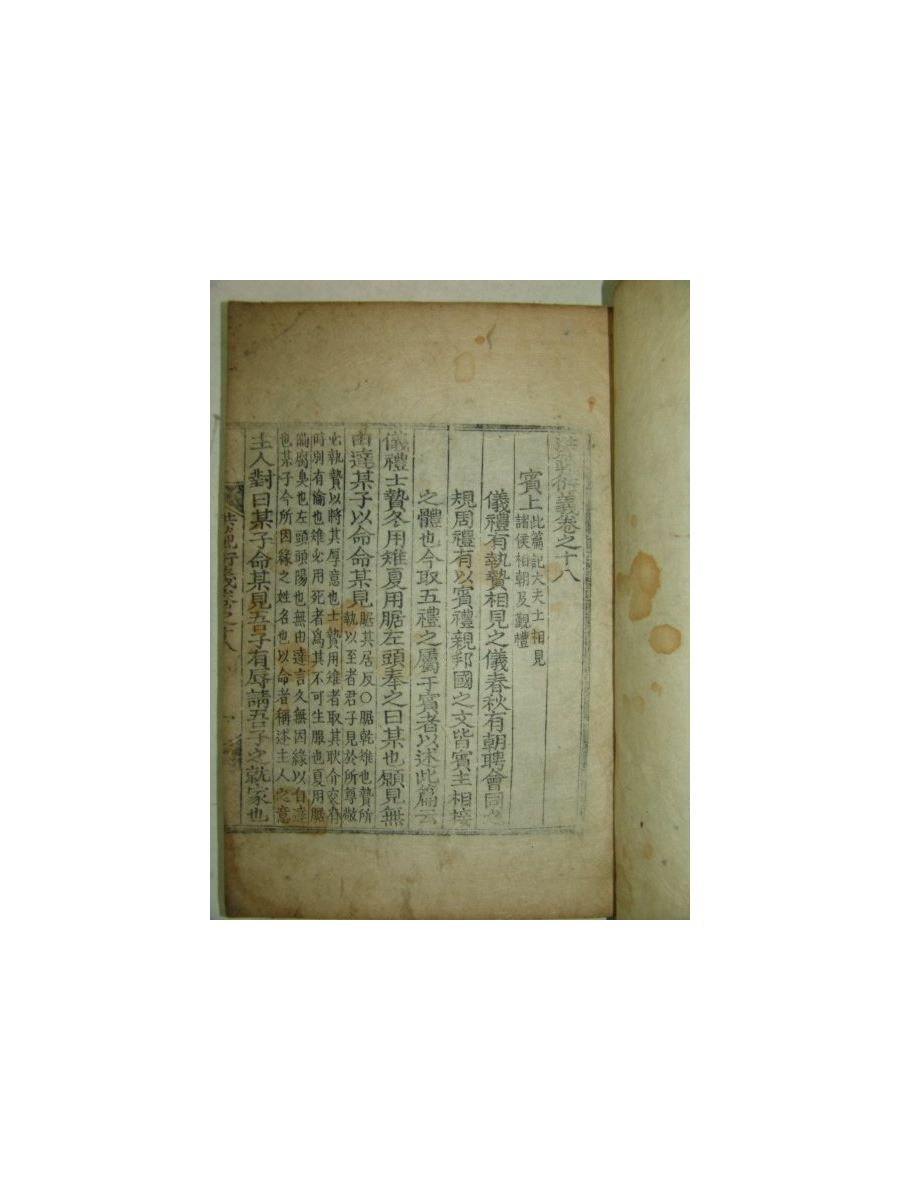 洪範衍義卷之十八
賓上 此篇記大夫士相見
諸侯相朝及覲禮
儀禮有執贄相見之儀春秋有朝聘會同之
規周禮有以賓禮親邦國之文皆賓主相接
之體也今取五禮之屬于賓者以述此篇云
儀禮士贄冬用雉夏用腒左頭奉之曰某也願見無
由達某子以命命某見 腒其居反〇腒乾雉也贄所
執以至者君子見於所尊敬
必執贄以將其厚意也士贄用雉者取其耿介交有
時別有倫也雉必用死者爲其不可生服也夏用腒
備腐臭也左頭頭陽也無由達言久無因緣以自達
也某子今所因緣之姓名也以命者稱述主人之意
主人對曰某子命某見吾子有辱請吾子之就家也
洪範衍義卷之十八 一